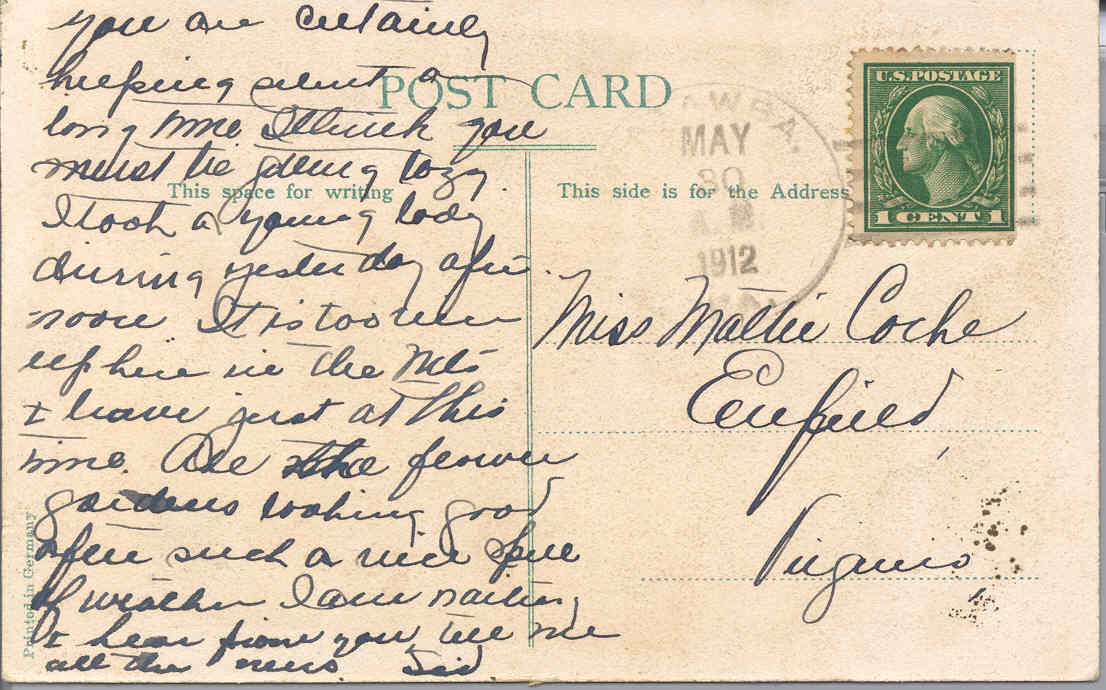 you are certainly
keeping silent a
long time I think you
must be getting lazy.
I took a young lady
driving yesterday after
noon It is too
up here in the Mts
& leave just at this
time. Are the flower
gardens looking good
after such a nice spell
of weather I am waiting
to hear from you tell me
all the news. Sid
POST CARD
This space for writing
This side is for the Address
Printed in Germany
MAY
30
A.M.
1912
U.S. POSTAGE
1 CENT 1
Miss Mattie Cocke
Enfield,
Virginia